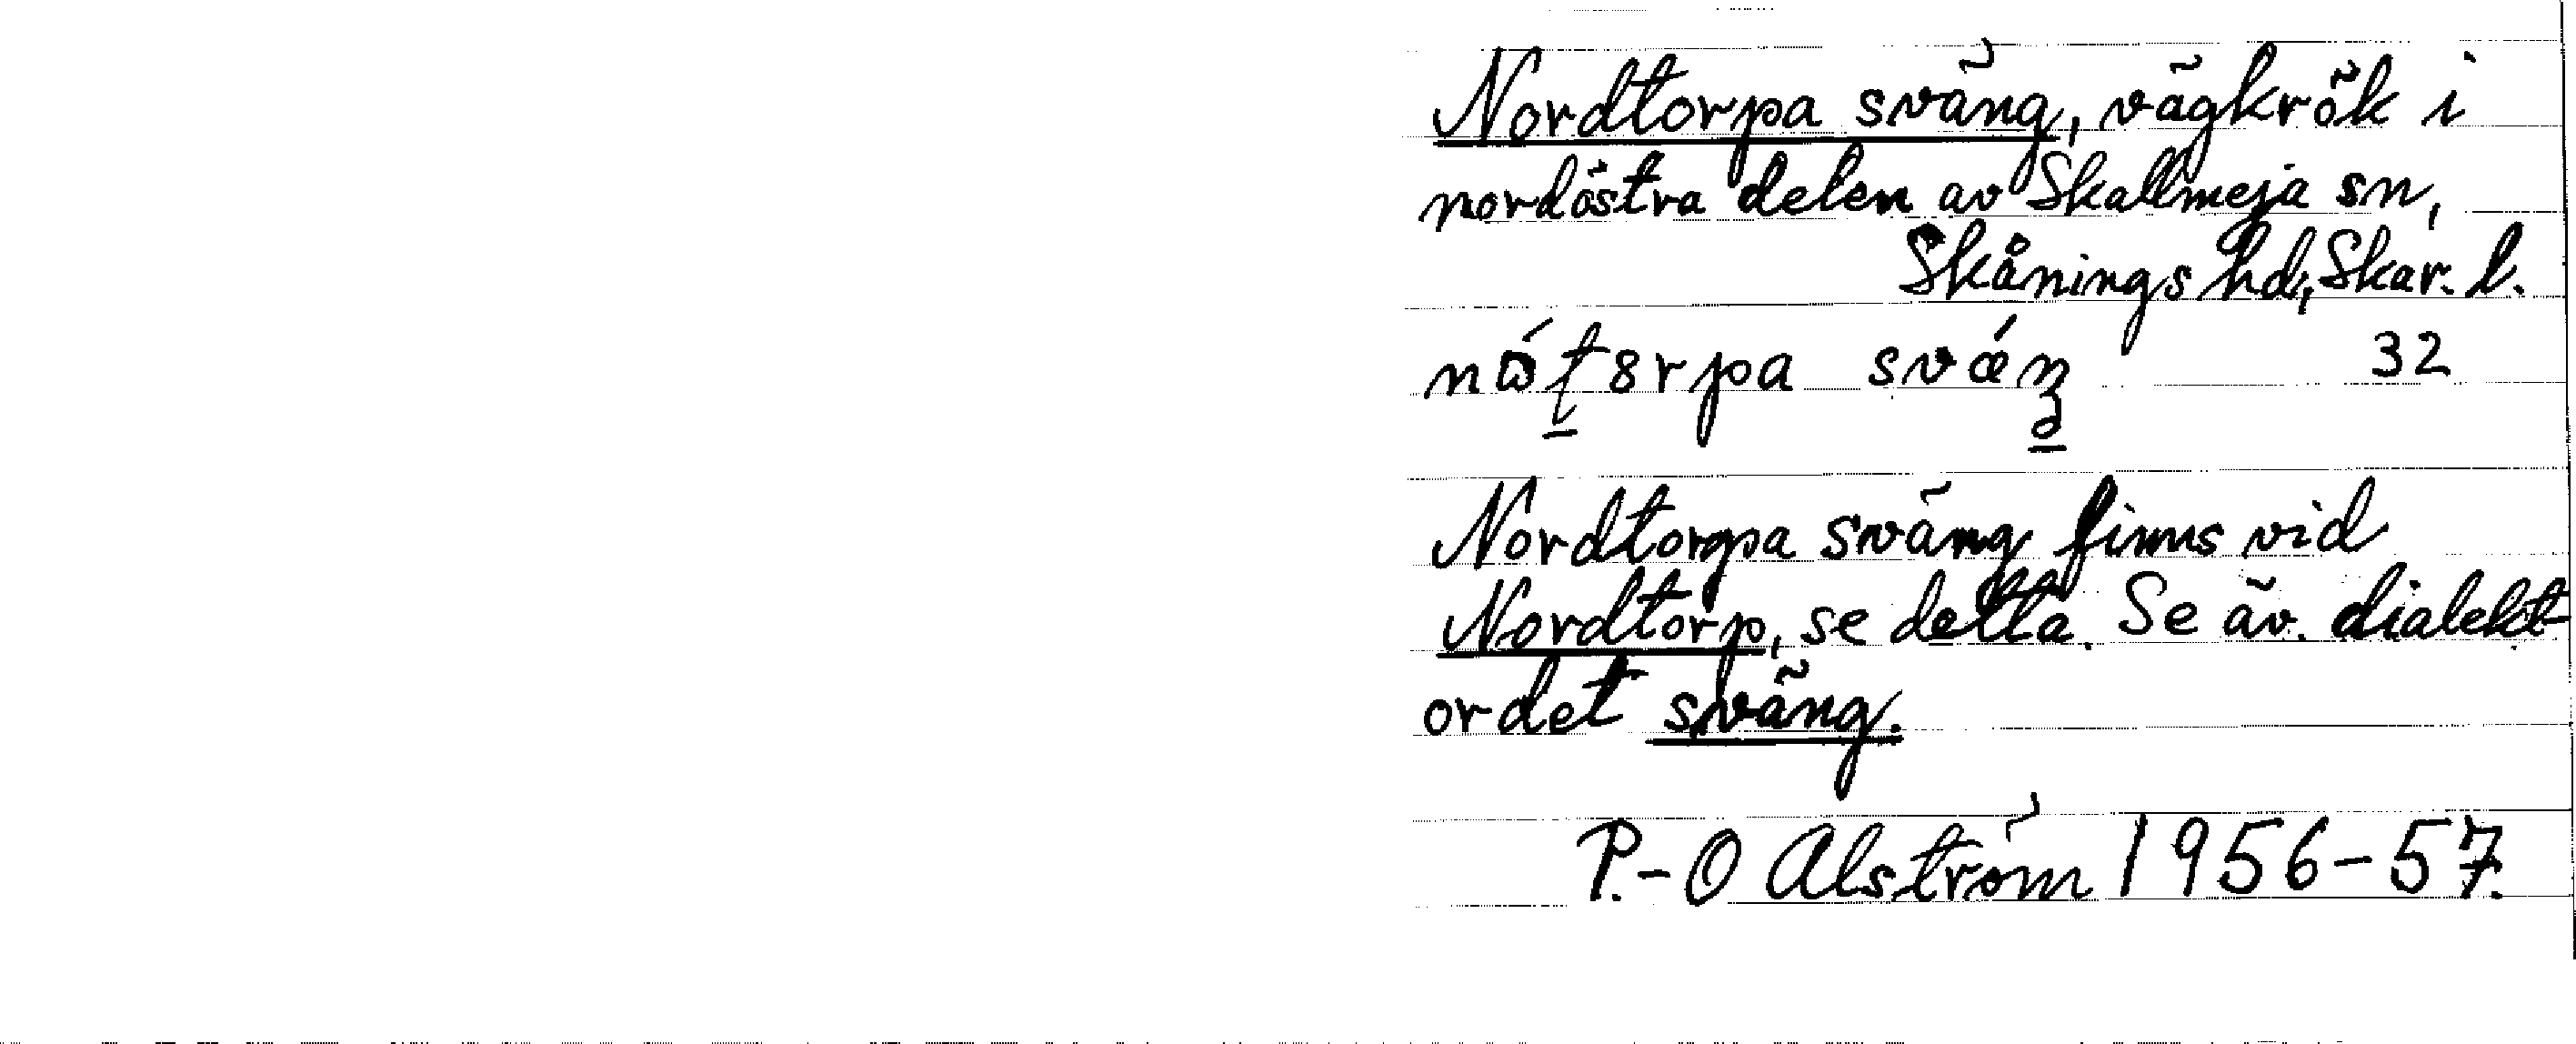 Nordtorpa sväng, vägkrök i
nordöstra delen av Skallmeja sn,
Skånings hd, Skar. l.
32
Nordtorpa sväng finns vid
Nordtorp, se detta. Se äv. dialekt-
ordet sväng.
P.-O Alström 1956-57.